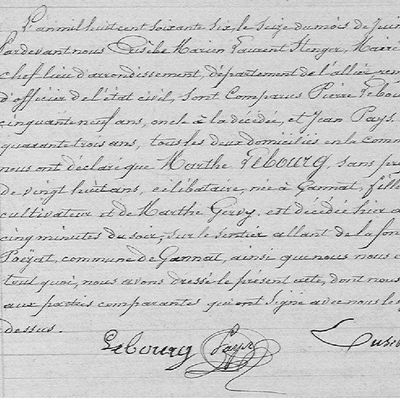 L'an mil huit cent soixante six, le seize du mois de Juin
Pardevant nous Eusèbe Marien Laurent Stenger, Maire
chef lieu d'arrondissement, département de l'allier
d'officier de l'état civil, sont comparus Pierre Lebou
cinquante neuf ans, oncle à la décédée, et Jean Pays
quarante trois ans, tous les deux domiciliés en la Comm
nous ont déclaré que Marthe Lebourg, sans pro
de vingt huit ans, célibataire, née à Gannat, fille
cultivateur et de Marthe Gervy, est décédée hier à
cinq minutes du soir, sur le sentier allant de la fon
commune de Gannat, ainsi que nous
tout quoi, nous avons dressé le présent acte, dont nous
aux parties comparantes qui ont signé avec nous les
dessus.
Lebourg Pays